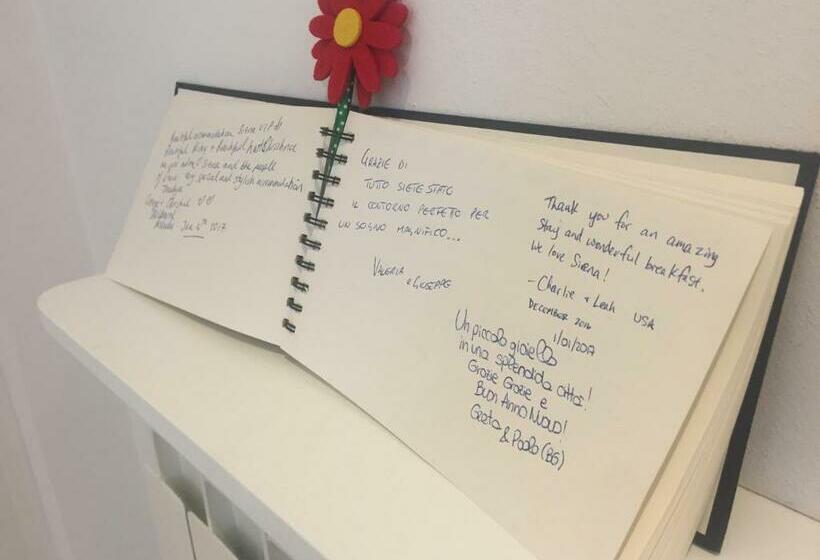 Beautiful accommodation Siena VIP
Beautiful
we
Siena and the people
very special and stylish accommodation
Jan 4th 2017
GRAZIE DI
TUTTO SIETE STATO
IL CONTORNO PERFETTO PER
UN SOGNO MAGNIFICO...
VALERIA
e GIUSEPPE
Thank you for an amazing
Stay and wonderful breakfast.
We love Siena!
- Charlie + Leah USA
DECEMBER 2016
1/01/2017
Un piccolo gioiello
in una splendida città!
Grazie Grazie e
Buon Anno Nuovo!
Greta & Paolo (BG)